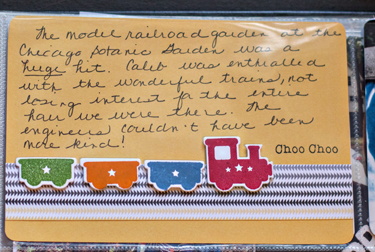 The model railroad garden at the
Chicago Botanic Garden was a
huge hit. Caleb was enthralled
with the wonderful trains, not
losing interest for the entire
hour we were there. The
engineers couldn't have been
more kind!
Choo Choo